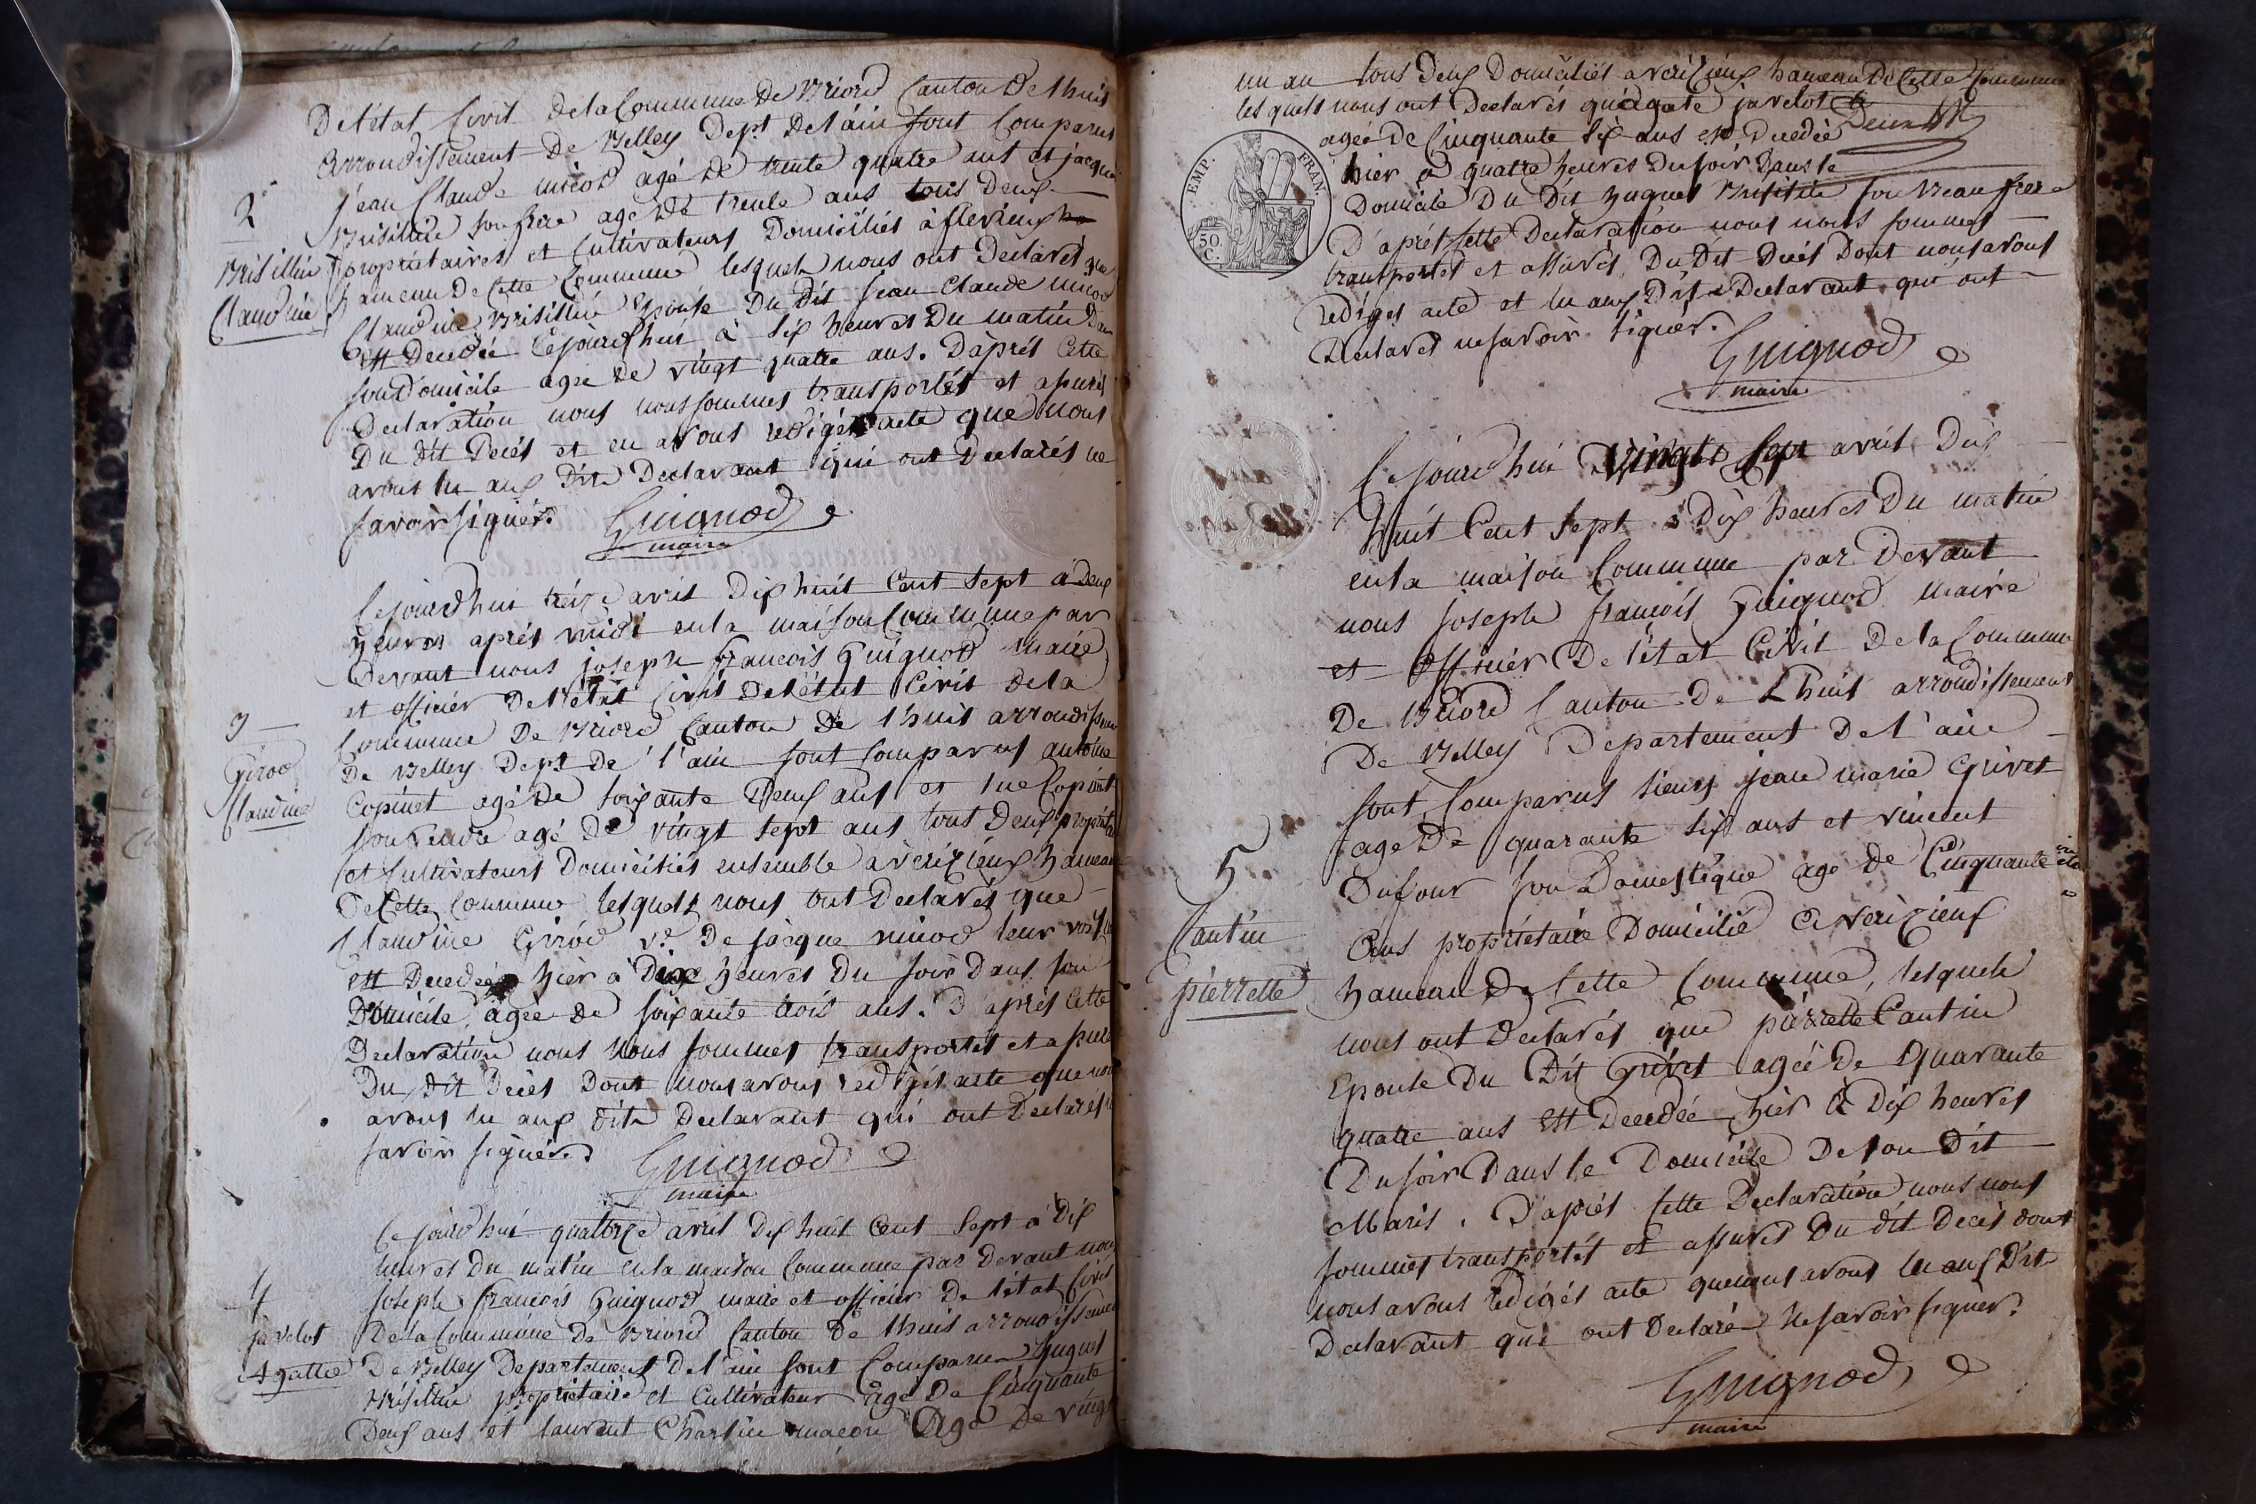 De l'état Civil de la Commune de Briord Canton de Lhuis
arrondissement de Belley Dept de l'ain sont Comparus
2e
Jean Claude micod agé de trente quatre ans et jacque
Brisillin son frere agé de trente ans tous Deux
Brisillin
propriétaires et Cultivateurs Domiciliés à flevieux
Claudine
hameau de Cette Commune lesquels nous ont Declarés que
Claudine Brisillin Epouse Du dit Jean Claude micod
Est Decedée Cejourd'hui à Six heures Du matin Dans
son Domicile agée de vingt quatre ans. D'après Cette
Declaration nous nous sommes transportés et assurés
Du dit Decés et en avons redigés acte que nous
avons lu aux Dits Declarant qui ont Declarés ne
savoir signer.
Guignod
maire
Cejourd'hui treize avril Dix huit Cent Sept à Deux
heures après midi en la maison Commune par
Devant nous joseph francois Guignod maire
et officier de l'état Civil de l'état Civil de la
3
Commune De Briord Canton de Lhuis arrondissem
Girod
De Belley Dept de l'ain sont Comparus antoine
Claudine
Copinet agé De soixante Deux ans et Copinet
agé De vingt sept ans tous Deux propriétaires
et Cultivateurs Domiciliés ensemble a verizieux hameau
De Cette Commune lesquels nous ont Declarés que
Claudine Girod ve. De jacque micod leur
Est Decedée hier à Dix heures Du soir Dans son
Domicile, agée de soixante trois ans. D'après Cette
Declaration nous nous sommes transportés et assurés
Du dit Decés Dont nous avons redigés acte que nous
avons lu aux dits Declarant qui ont Declarés ne
savoir signer.
Guignod
maire
Cejourd'hui quatorze avril Dix huit Cent Sept à Dix
heures Du matin en la maison Commune par Devant nous
4
Joseph francois Guignod maire et officier De l'état Civil
javelot
De la Commune de Briord Canton De Lhuis arrondissement
Agatte
De Belley Departement De l'ain sont Comparus huguet
Brisillin propriétaire et Cultivateur agé De Cinquante
Deux ans et laurent Charlin macon Agé De vingt
un an tous Deux Domiciliés a verizieux hameau De Cette Commune
lesquels nous ont Declarés qu'agate javelot
agée De Cinquante Six ans est Decedée
hier a quatre heures Du soir Dans le
EMP. FRAN.
50. C.
Domicile Du Dit huguet Brisillin son Beau frere
D'après Cette Declaration nous nous sommes
transportés et assurés, Du Dit Decés Dont nous avons
redigés acte et lu aux Dits Declarant qui ont
Declarés ne savoir signer.
Guignod
maire
Cejourd'hui vingt Sept avril Dix
huit Cent Sept à Dix heures Du matin
en la maison Commune par Devant
nous Joseph francois Guignod maire
et officier De l'état Civil De la Commune
De Briord Canton De Lhuis arrondissement
De Belley Departement De l'ain
sont Comparus sieurs jean marie Grivet
agé De quarante Six ans et vincent
5
Dufour son Domestique agé de Cinquante
Cantin
ans propriétaire Domicilié a verizieux
pierrette
hameau De Cette Commune, lesquels
nous ont Declarés que pierrette Cantin
Epouse Du Dit Grivet agée De Quarante
quatre ans Est Decedée hier à Dix heures
Du soir Dans le Domicile De son Dit
Maris. D'après Cette Declaration nous nous
sommes transportés et assurés Du dit Decés dont
nous avons redigés acte que nous avons lu aux Dits
Declarant qui ont Declaré ne savoir signer.
Guignod
maire